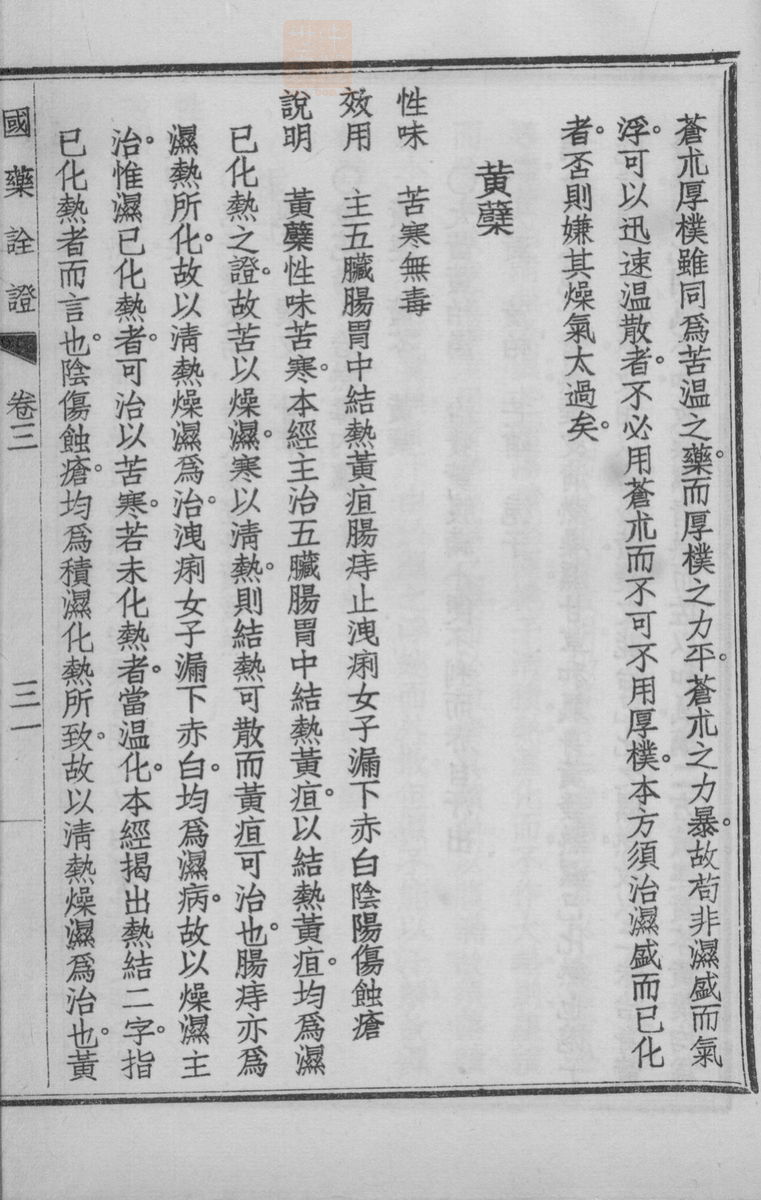 蒼朮厚樸雖同爲苦温之藥。而厚樸之力平。蒼朮之力暴。故苟非濕盛而氣
浮。可以迅速温散者。不必用蒼朮而不可不用厚樸。本方須治濕盛而已化
者。否則嫌其燥氣太過矣。
黄蘗
性味　苦寒無毒
效用　主五臟腸胃中結熱黄疸腸痔止洩痢女子漏下赤白陰陽傷蝕瘡
說明　黄蘗性味苦寒。本經主治五臟腸胃中結熱黄疸。以結熱黄疸。均爲濕
已化熱之證。故苦以燥濕。寒以淸熱。則結熱可散而黄疸可治也。腸痔亦爲
濕熱所化。故以淸熱燥濕爲治。洩痢女子漏下赤白。均爲濕病。故以燥濕主
治。惟濕已化熱者。可治以苦寒。若未化熱者。當温化。本經揭出熱結二字。指
已化熱者而言也。陰傷蝕瘡。均爲積濕化熱所致。故以淸熱燥濕爲治也。黄
國藥詮證　卷三　三一